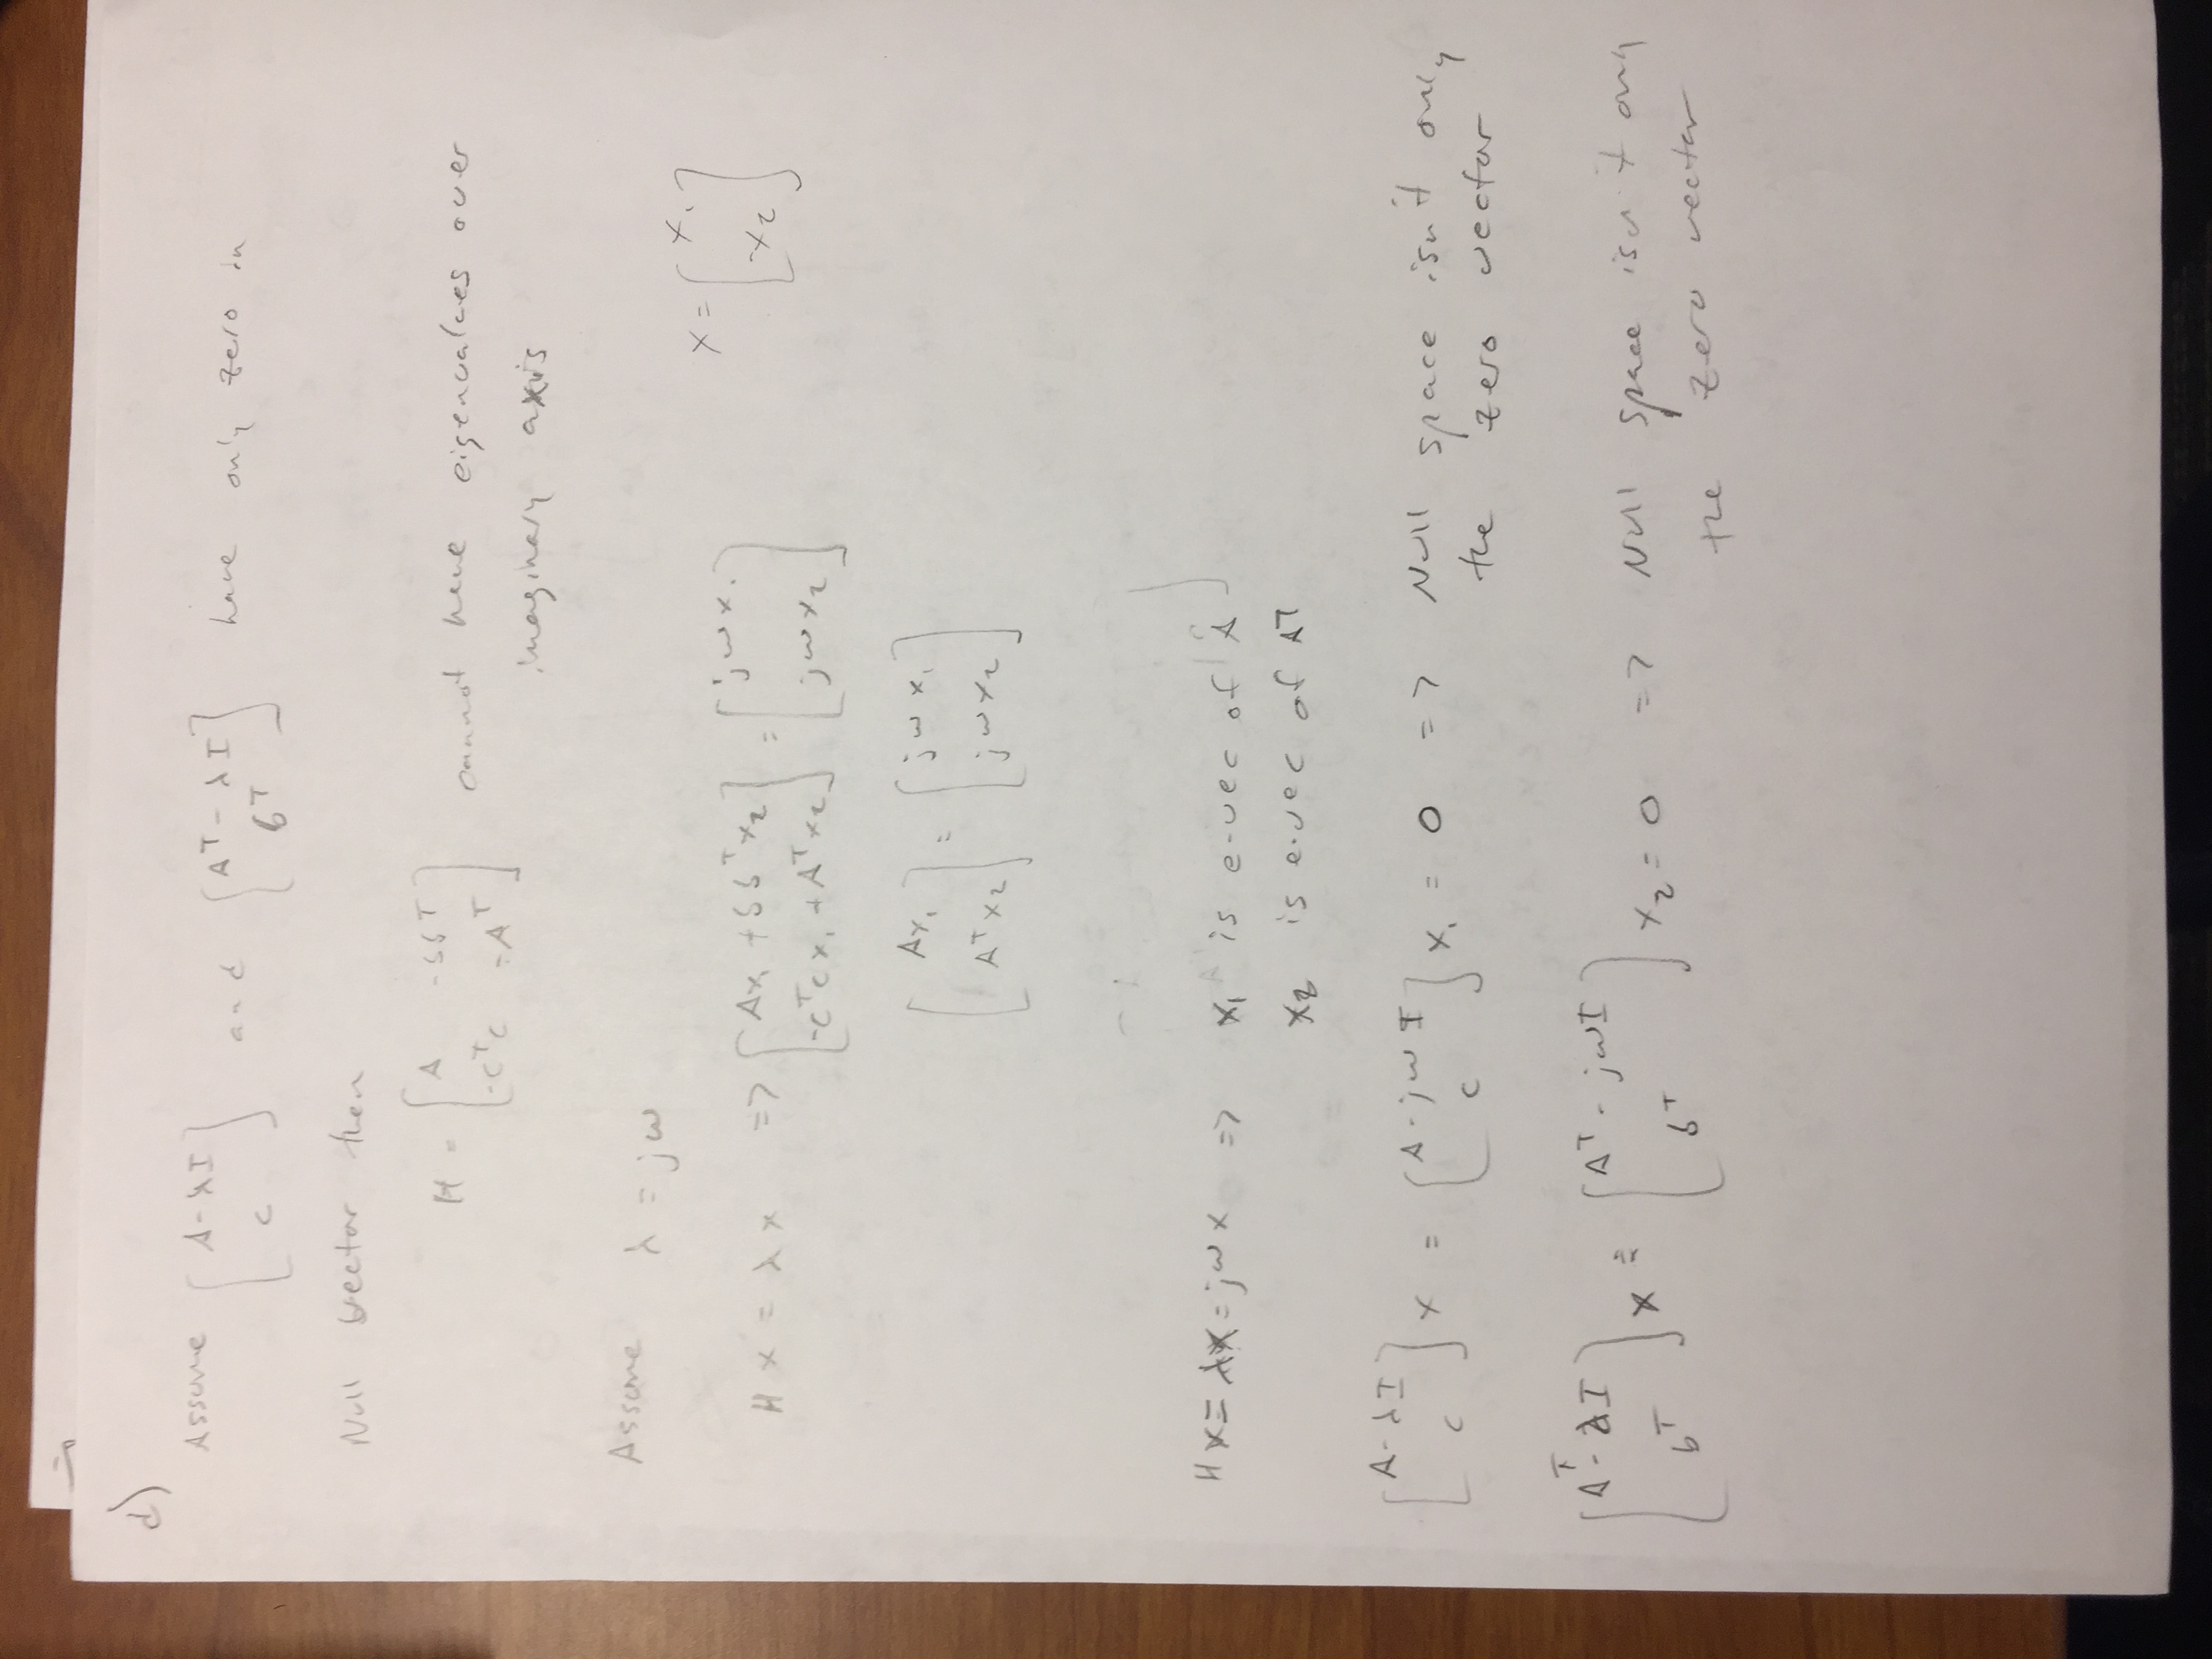 d)
Assume [A-λI; c] and [A^T-λI; b^T] have only zero in
Null vector then
H = [A -bb^T; -c^Tc -A^T] cannot have eigenvalues over
imaginary axis
Assume λ = jω
x = [x₁; -x₂]
Hx = λx => [Ax₁ + bb^Tx₂; -c^Tcx₁ + A^Tx₂] = [jωx₁; jωx₂]
[Ax₁; A^Tx₂] = [jωx₁; jωx₂]
Hx = λx = jωx => x₁ is e-vec of A
x₂ is e-vec of A^T
[A-λI; c] x = [A-jωI; c] x₁ = 0 => Null space isn't only
the zero vector
[A^T-λI; b^T] x = [A^T-jωI; b^T] x₂ = 0 => Null space isn't only
the zero vector